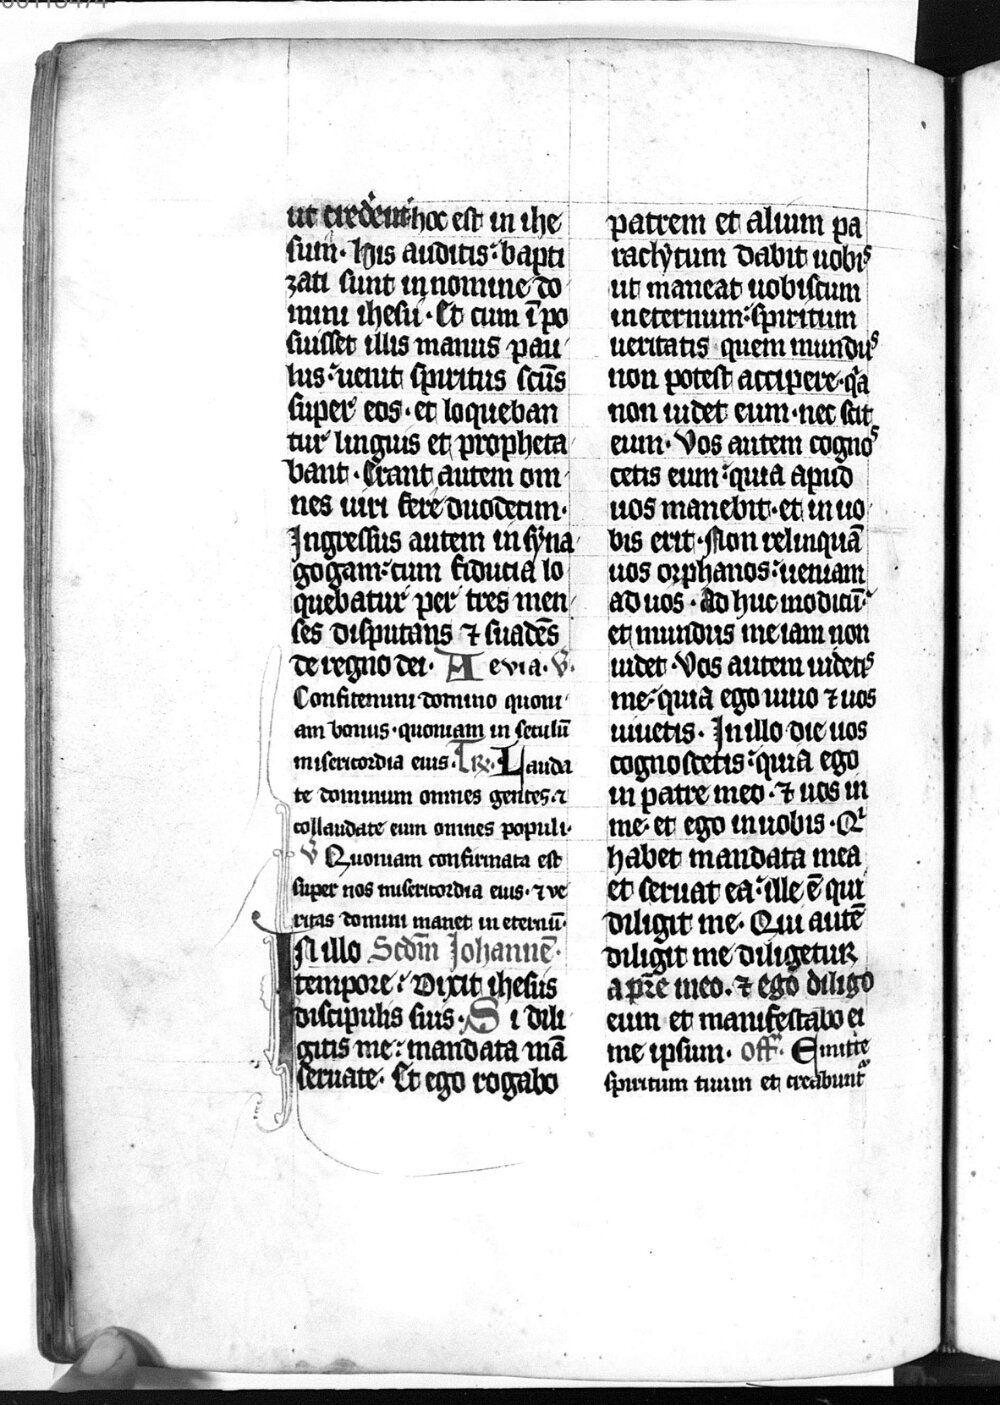 ut crede̅nt hoc est in ihe
sum · his auditis · bapti
zati sunt in nomine do
mini ihesu · Et cum i̅po
suisset illis manus pau
lus · uenit spiritus sc̅us
super eos · et loqueban
tur linguis et propheta
bant · Erant autem om
nes uiri fere duodecim ·
Ingressus autem in syna
gogam · cum fiducia lo
quebatur per tres men
ses disputans ⁊ suade̅s
de regno dei · Aeuia · V̅ ·
Confitemini domino quoni
am bonus · quoniam in seculu̅
misericordia eius · Tr · Lauda
te dominum omnes gentes · ⁊
collaudate eum omnes populi ·
V̅ Quoniam confirmata est
super nos misericordia eius · ⁊ ve
ritas domini manet in eternu̅ ·
IN illo Scd̅m Johanne̅ ·
tempore · Dixit ihesus
discipulis suis · Si dili
gitis me · mandata m̅a
seruate · Et ego rogabo
patrem et alium pa
raclytum dabit uobis
ut maneat uobiscum
in eternum · spiritum
ueritatis quem mundus
non potest accipere · q̅a
non uidet eum · nec scit
eum · Vos autem cognos
cetis eum · quia apud
uos manebit · et in uo
bis erit · Non relinqua̅
uos orphanos · ueniam
ad uos · Ad huc modicu̅ ·
et mundus me iam non
uidet · Vos autem uidetis
me · quia ego uiuo ⁊ uos
uiuetis · In illo die uos
cognoscetis · quia ego
in patre meo · ⁊ uos in
me · et ego in uobis · Qi
habet mandata mea
et seruat ea · ille e̅ qui
diligit me · Qui aute̅
diligit me diligetur
a p̅re meo · ⁊ ego diligo
eum et manifestabo ei
me ipsum · off̅ · Emitte
spiritum tuum et creabunt